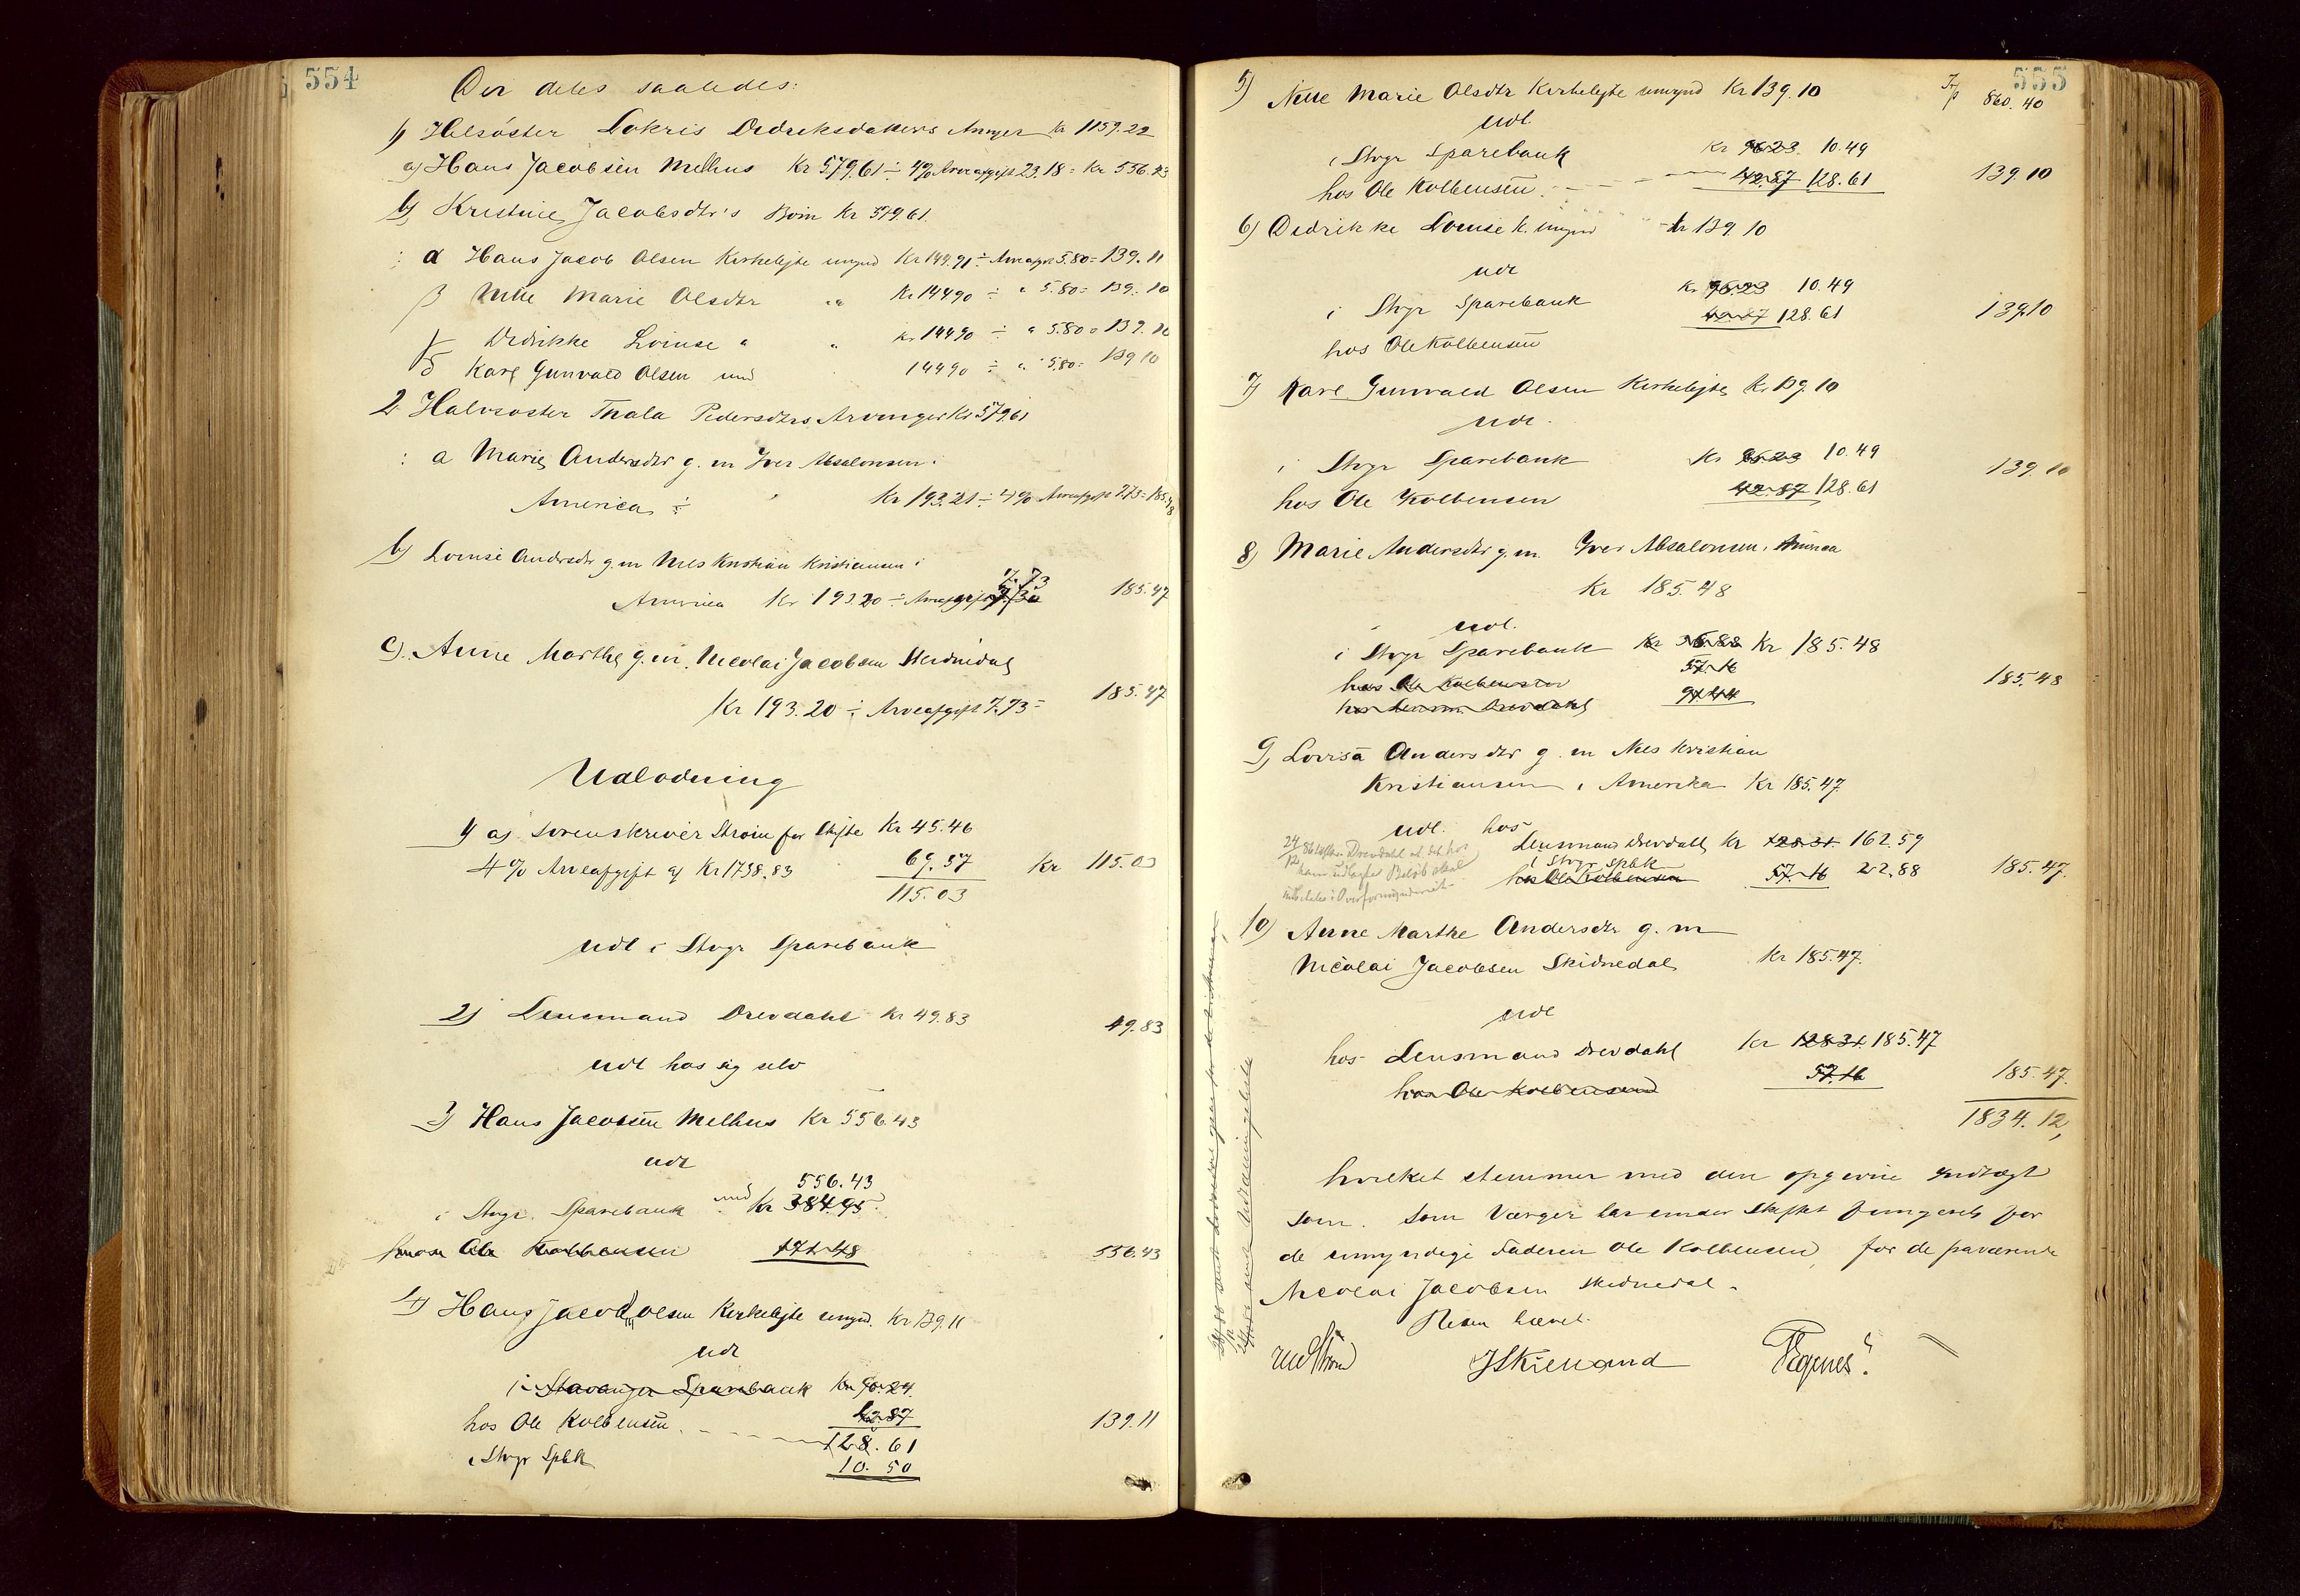 554
Der deles saaledes:
1) Helsöster Lokris Dedriksdatters Arvinger Kr 1159.22
a) Hans Jacobsen Melhus Kr 579.61 ÷ 4% Arveafgift 23.18 = Kr 556.43
b) Kristine Jacobsdtr's Börn Kr 579.61.
α Hans Jacob Olsen Kirkeleite umynd Kr 144.91 ÷ Arveafgift 5.80 = 139.11
β Nille Marie Olsdtr " Kr 144 90 ÷ " 5.80 = 139.10
γ Didrikke Lovise " " Kr 144 90 ÷ " 5.80 = 139.10
δ Karl Gunvald Olsen umd 144 90 ÷ " 5.80 = 139 10
2 Halvsöster Thala Pedersdtrs Arvinger Kr 579.61
a Marie Andersdtr g. m Iver Absalonsen i
America ÷ Kr 193.21 ÷ 4% Arveafgift 7.73 = 185.48
b) Lovise Andersdtr g. m Nils Kristian Kristiansen i
7.73
America Kr 193.20 ÷ Arveafgift 185.47
c) Anne Marthe g. m. Nicolai Jacobsen Skidnedal
Kr 193.20 ÷ Arveafgift 7.73 = 185.47
Udlodning
1) a) Sorenskriver Ström for Skifte Kr 45.46
4% Arveafgift af Kr 1738.83 69.57 Kr 115.03
115.03
udl i Stvgr Sparebank
2) Lensmand Drevdahl Kr 49.83 49.83
udl hos sig selv
3) Hans Jacobsen Melhus Kr 556.43
udl
556.43
i Stvgr. Sparebank Kr 384.95
hos Ole Kolbensen 171.48 556.43
4) Hans Jacob Olsen Kirkeleite umynd. Kr 139.11
udl
i Stavanger Sparebank Kr 96.24
hos Ole Kolbensen 42.87 139.11
128.61
i Stvgr Spbk 10.50
555
5) Nille Marie Olsdtr Kirkeleite umynd Kr 139.10 Trp 860.40
udl.
i Stvgr Sparebank Kr 96.23 10.49
hos Ole Kolbensen 42.87 128.61 139.10
6) Dedrikke Lovise K. umynd Kr 139.10
udl
i Stvgr Sparebank Kr 96.23 10.49
42.87 128.61 139.10
hos Ole Kolbensen
7) Karl Gunvald Olsen Kirkeleite Kr 139.10
udl.
i Stvgr Sparebank Kr 96.23 10.49
hos Ole Kolbensen 42.87 128.61 139.10
8) Marie Andersdtr g. m. Iver Absalonsen, America
Kr 185.48
udl.
i Stvgr Sparebank Kr 36.88 Kr 185.48
hos Ole Kolbensen 57.16 185.48
hos Lensm. Drevdahl 91.44
9) Lovisa Andersdtr g. m Nils Kristian
Kristiansen i Amerika Kr 185.47
udl. hos Lensmand Drevdahl Kr 128.31 162.59
i Stvgr Spbk
hos Ole Kolbensen 57.16 22.88 185.47.
10) Anne Marthe Andersdtr g. m
Nicolai Jacobsen Skidnedal Kr 185.47.
udl
hos Lensmand Drevdahl Kr 128.31 185.47
hos Ole Kolbensen 57.16 185.47.
1834.12,
hvilket stemmer med den opgivne Indtægt
som. Som Værger har under Skiftet fungeret for
de umyndige Faderen Ole Kolbensen, for de fraværende
Nicolai Jacobsen Skidnedal.
Retten hævet.